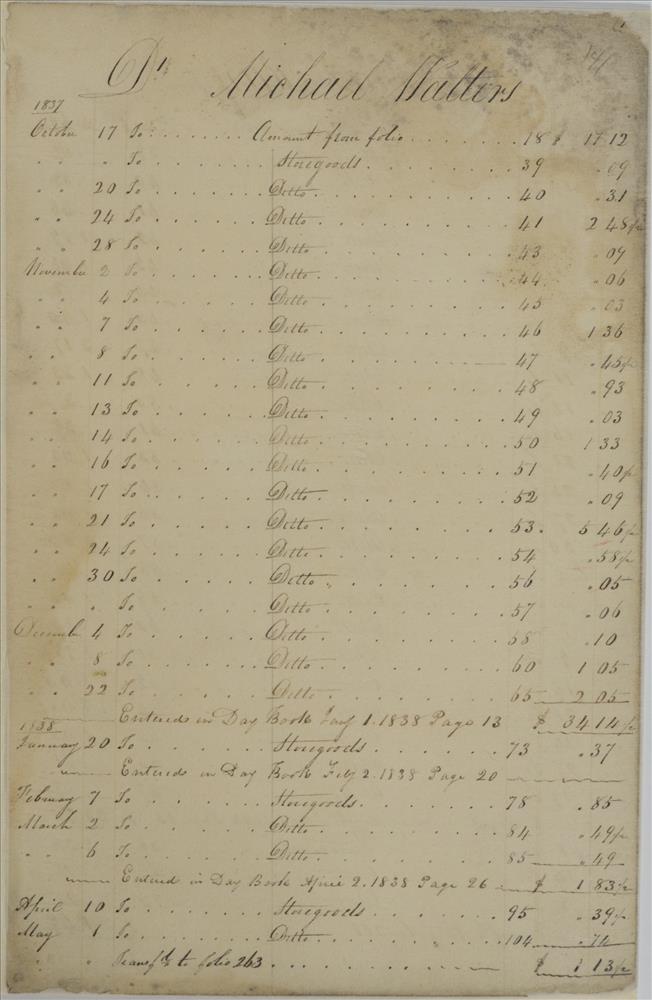 Dr Michael Walters
1837
October 17 To . . . . . . . Amount from folio . . . . . . . 18 $ 17 12
" " " To . . . . . . . Storegoods . . . . . . . 39 " 09
" " 20 To . . . . . . . Ditto . . . . . . . 40 " 31
" " 24 To . . . . . . . Ditto . . . . . . . 41 2 48½
" " 28 To . . . . . . . Ditto . . . . . . . 43 " 09
November 2 To . . . . . . . Ditto . . . . . . . 44 " 06
" " 4 To . . . . . . . Ditto . . . . . . . 45 " 03
" " 7 To . . . . . . . Ditto . . . . . . . 46 1 36
" " 8 To . . . . . . . Ditto . . . . . . . 47 " 45½
" " 11 To . . . . . . . Ditto . . . . . . . 48 " 93
" " 13 To . . . . . . . Ditto . . . . . . . 49 " 03
" " 14 To . . . . . . . Ditto . . . . . . . 50 1 33
" " 16 To . . . . . . . Ditto . . . . . . . 51 " 40½
" " 17 To . . . . . . . Ditto . . . . . . . 52 " 09
" " 21 To . . . . . . . Ditto . . . . . . . 53 5 46½
" " 24 To . . . . . . . Ditto . . . . . . . 54 " 58½
" " 30 To . . . . . . . Ditto . . . . . . . 56 " 05
" " " To . . . . . . . Ditto . . . . . . . 57 " 06
December 4 To . . . . . . . Ditto . . . . . . . 58 " 10
" " 8 To . . . . . . . Ditto . . . . . . . 60 1 05
" " 22 To . . . . . . . Ditto . . . . . . . 65 2 05
Entered in Day Book Jany 1. 1838 Page 13 $ 34 14½
1838
January 20 To . . . . . . . Storegoods . . . . . . . 73 " 37
Entered in Day Book Feby 2. 1838 Page 20
February 7 To . . . . . . . Storegoods . . . . . . . 78 " 85
March 2 To . . . . . . . Ditto . . . . . . . 84 " 49½
" " 6 To . . . . . . . Ditto . . . . . . . 85 " 49
Entered in Day Book April 2. 1838 Page 26 $ 1 83½
April 10 To . . . . . . . Storegoods . . . . . . . 95 " 39½
May 1 To . . . . . . . Ditto . . . . . . . 104 " 74
" " Transfd to folio 263 . . . . . . . $ 1 13½